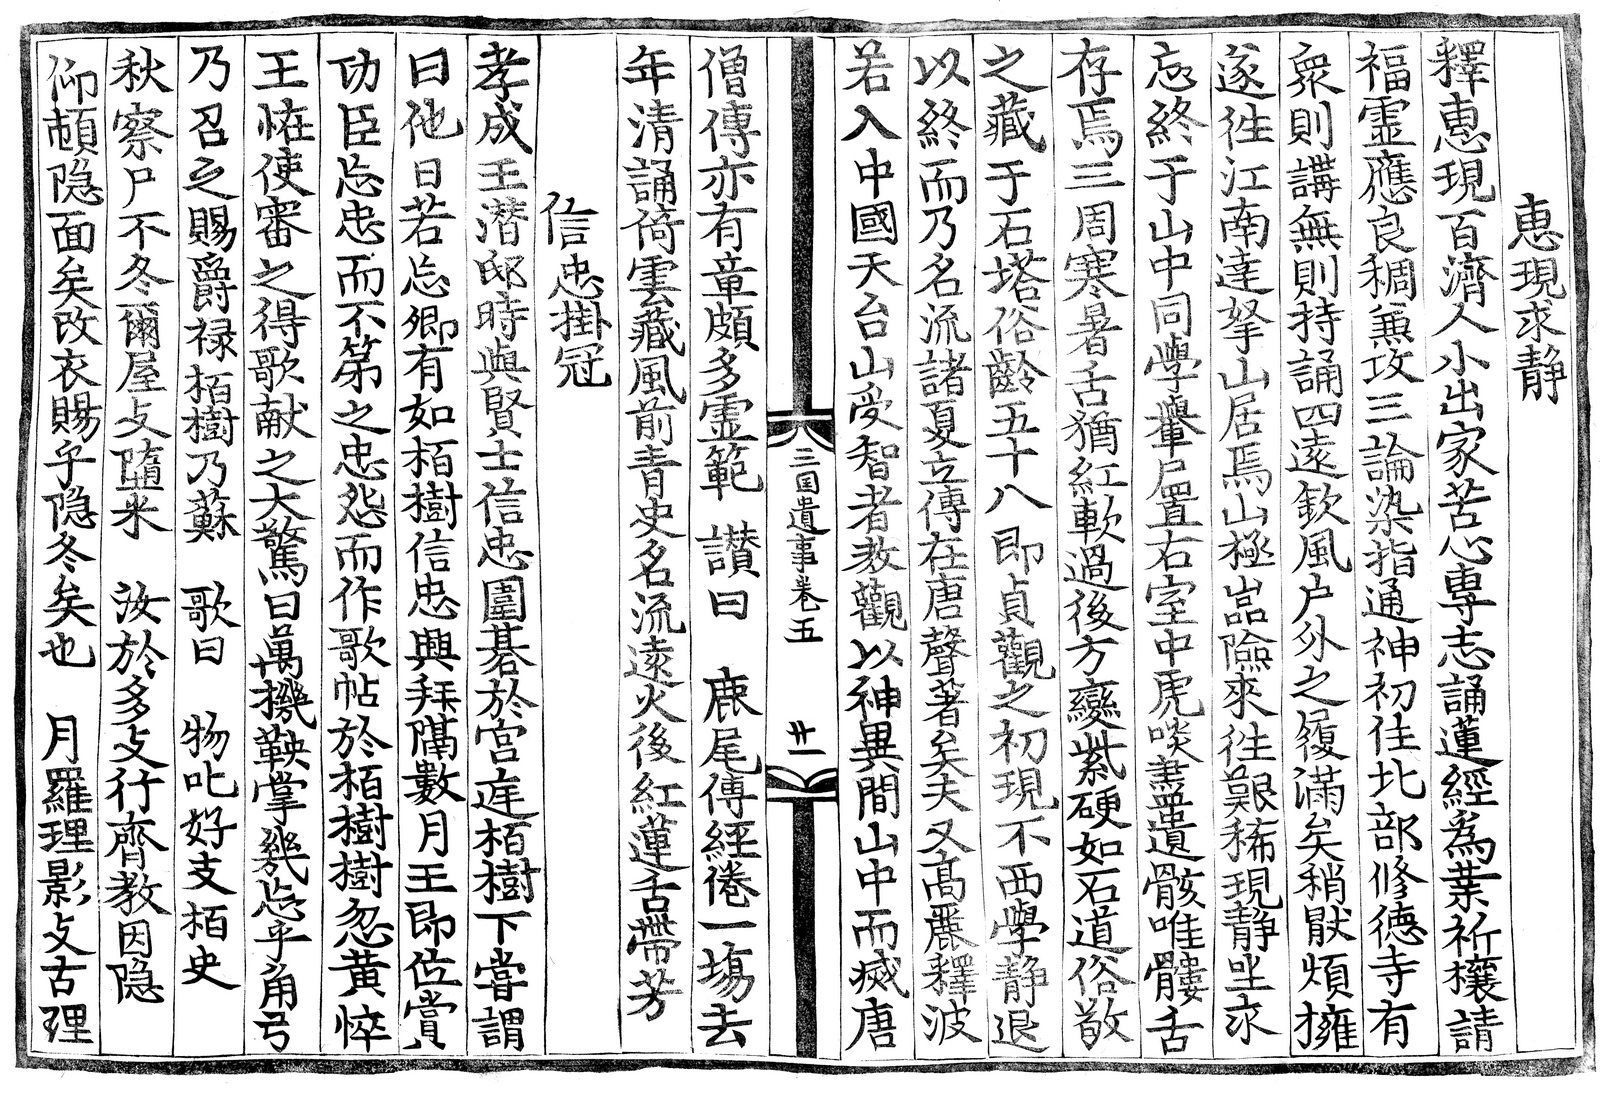 惠現求静
釋惠現百濟人小出家苦心專志誦蓮經爲業祈禳請
福霊應良稠兼攻三論染指通神初住北部修德寺有
衆則講無則持誦四遠欽風户外之履滿矣稍猒煩擁
遂徃江南達拏山居焉山極嵓險來徃艱稀現静坐求
忘終于山中同學轝尸置石室中虎啖盡遺骸唯髏舌
存焉三周寒暑舌猶紅軟過後方變紫硬如石道俗敬
之藏于石塔俗齡五十八即貞觀之初現不西學静退
以終而乃名流諸夏立傳在唐聲著矣夫又髙麗釋波
若入中國天台山受智者教觀以神異間山中而滅唐
三国遺事卷五
廿一
僧傳亦有章頗多霊範 讃曰 鹿尾傳經倦一塲去
年清誦倚雲藏風前青史名流遠火後紅蓮舌帶芳
信忠掛冠
孝成王潜邸時與賢士信忠圍碁於宮庭栢樹下甞謂
曰他日若忘卿有如栢樹信忠興拜隔數月王即位賞
功臣忘忠而不第之忠怨而作歌帖於栢樹樹忽黄悴
王恠使審之得歌献之大驚曰萬機鞅掌㡬忘乎角弓
乃召之賜爵禄栢樹乃蘇 歌曰 物叱好支栢史
秋察尸不冬爾屋攴墮米 汝於多攴行齊教因隐
仰頓隐面矣改衣賜乎隐冬矣也 月羅理影攴古理